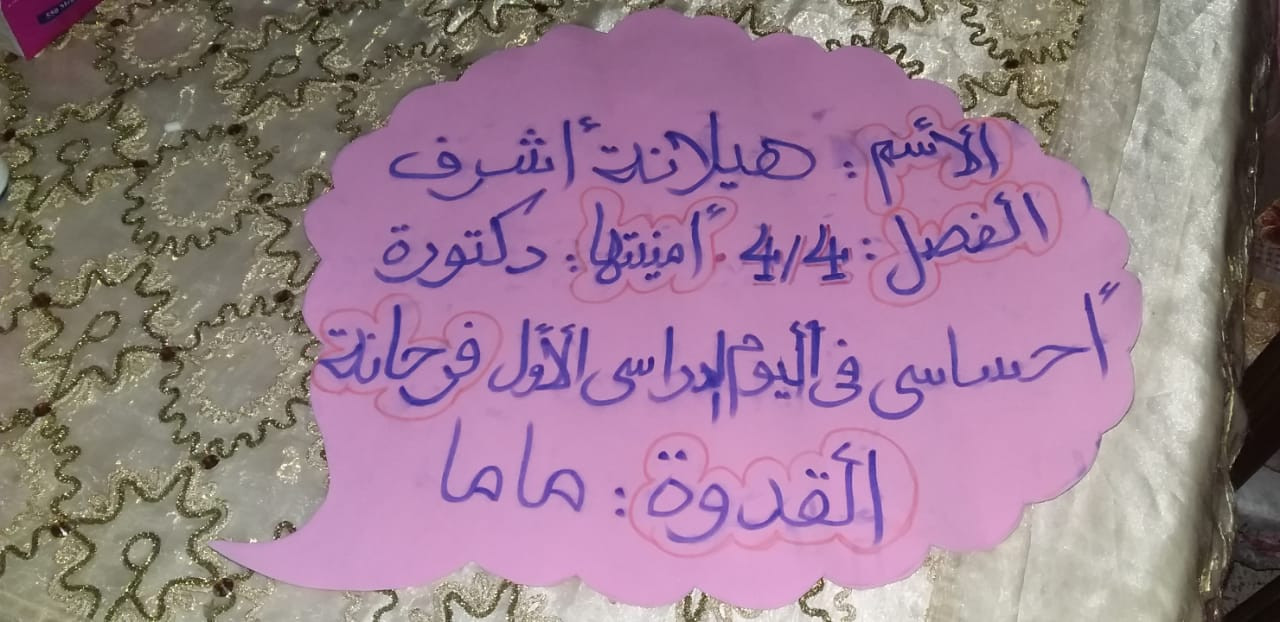 الأسم : هيلانة أشرف
الفصل : 4/4 . أمنيتها : دكتورة
أحساسى فى اليوم الدراسى الأول فرحانة
القدوة : ماما